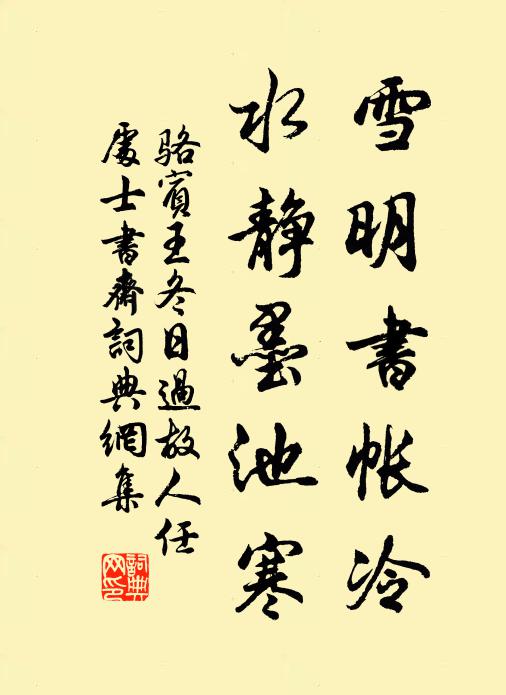 雪明書帐冷
水静墨池寒
骆賓王冬日過故人任
處士書齋詞典網集
詞典
网印